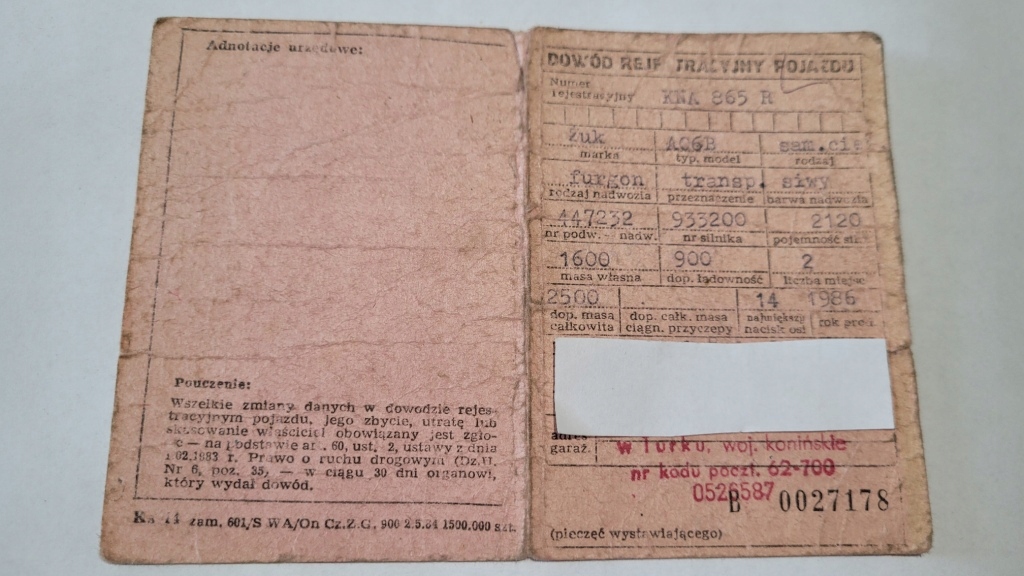 Adnotacje urzędowe:
Pouczenie:
Wszelkie zmiany danych w dowodzie rejes-
tracyjnym pojazdu, jego zbycie, utratę lub
skasowanie właściciel obowiązany jest zgło-
— na podstawie art. 60, ust. 2, ustawy z dnia
1.02.1983 r. Prawo o ruchu drogowym (Dz.U.
Nr 6, poz. 35) — w ciągu 30 dni organowi,
który wydał dowód.
zam. 601/S WA/On Cz.Z.G. 900 2.5.84 1500.000 szt.
DOWÓD REJE TRACYJNY POJAZDU
Numer
rejestracyjny KNA 865 R
żuk A06B
marka typ, model rodzaj
furgon transp. siwy
rodzaj nadwozia przeznaczenie barwa nadwozia
447232 933200 2120
nr podw. — nadw. nr silnika pojemność
1600 900 2
masa własna dop. ładowność liczba miejsc
2500 14 1986
dop. masa całkowita dop. całk. masa ciągn. przyczepy największy nacisk osi rok prod.
adres
garaż. w Turku, woj. konińskie
nr kodu poczt. 62-700
0526587
B 0027178
(pieczęć wystawiającego)